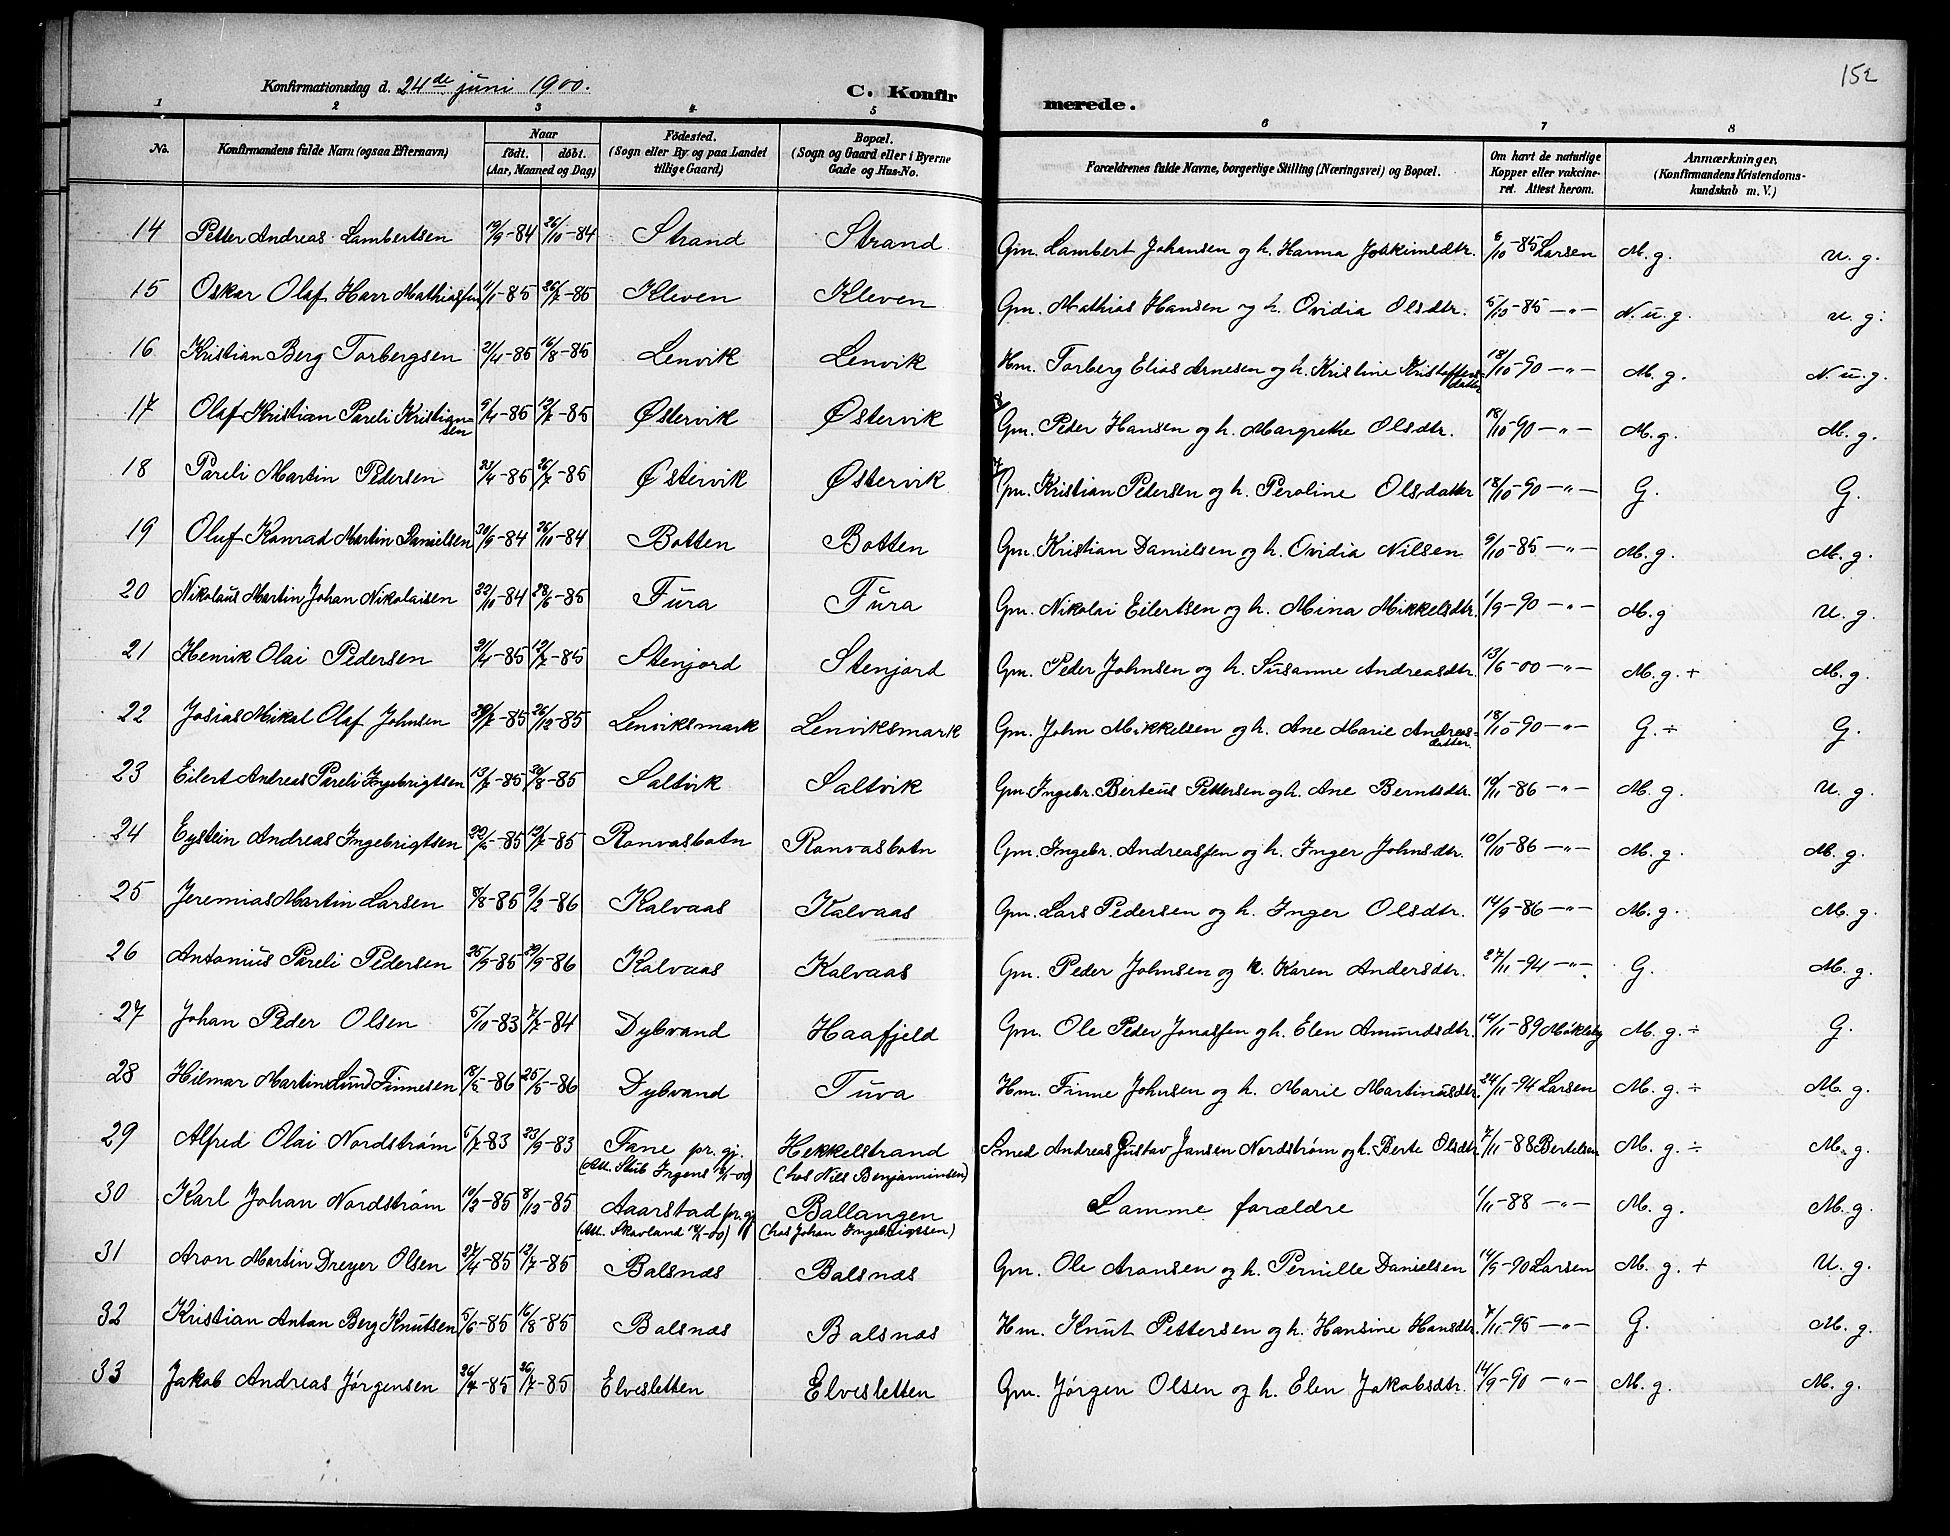 Konfirmationsdag d. 24de juni 1900.
C. Konfirmerede.
152
1 2 3 4 5 6 7 8
No. Konfirmandens fulde Navn (ogsaa Efternavn) Naar født. døbt. (Aar, Maaned og Dag) Fødested. (Sogn eller By og paa Landet tillige Gaard) Bopæl. (Sogn og Gaard eller i Byerne Gade og Hus-No. Forældrenes fulde Navne, borgerlige Stilling (Næringsvei) og Bopæl. Om havt de naturlige Kopper eller vakcineret. Attest herom. Anmærkninger. (Konfirmandens Kristendomskundskab m. V.)
14 Petter Andreas Lambertsen 19/9-84 26/10-84 Strand Strand Gm. Lambert Johansen og h. Hanna Joakimsdtr. 6/10-85 Larsen M. g. U. g.
15 Oskar Olaf Harr Mathiassen 1/1-85 26/7-85 Kleven Kleven Gm. Mathias Hansen og h. Ovidia Olsdtr. 5/10-85 -"- N. u. g. U. g.
16 Kristian Berg Torbergsen 2/4-85 16/8-85 Lenvik Lenvik Hm. Torberg Elias Arnesen og h. Kristine Kristoffersdatter 18/10-90 -"- M. g. N. u. g.
17 Olaf Kristian Pareli Kristiansen 9/4-85 12/7-85 Østervik Østervik Gm. Peder Hansen og h. Margrethe Olsdtr. 18/10-90 -"- M. g. M. g.
18 Pareli Martin Pedersen 23/4-85 26/7-85 Østervik Østervik Gm. Kristian Pedersen og h. Peroline Olsdatter 18/10-90 -"- G. G.
19 Oluf Konrad Martin Danielsen 30/9-84 26/10-84 Botten Botten Gm. Kristian Danielsen og h. Ovidia Nilsen 9/10-85 -"- M. g. M. g.
20 Nikolaus Martin Johan Nikolaisen 22/10-84 28/6-85 Fura Fura Gm. Nikolai Eilertsen og h. Mina Mikkelsdtr. 1/9-90 -"- M. g U. g.
21 Henrik Olai Pedersen 21/4-85 12/7-85 Stenjord Stenjord Gm. Peder Johnsen og h. Susanne Andreasdtr. 13/6-00 -"- M. g. + M. g.
22 Josias Mikal Olaf Johnsen 29/7-85 26/12-85 Lenviksmark Lenviksmark Gm. John Mikkelsen og h. Ane Marie Andreasdatter. 18/10-90 -"- G. ÷ G.
23 Eilert Andreas Pareli Ingebrigtsen 13/7-85 30/8-85 Saltvik Saltvik Gm. Ingebr. Berteus Pettersen og h. Ane Berntsdtr. 19/11-86 -"- M. g. U. g.
24 Eystein Andreas Ingebrigtsen 22/5-85 12/7-85 Ranvasbotn Ranvasbotn Gm. Ingebr. Andreassen og h. Inger Johnsdtr. 19/10-86 -"- M. g. M. g.
25 Jeremias Martin Larsen 8/8-85 9/2-86 Kalvaas Kalvaas Gm. Lars Pedersen og h. Inger Olsdtr. 14/9-86 -"- M. g. M. g.
26 Antonius Pareli Pedersen 25/9-85 29/9-86 Kalvaas Kalvaas Gm. Peder Johnsen og k. Karen Andersdtr. 27/11-94 -"- G. M. g.
27 Johan Peder Olsen 5/10-83 7/7-84 Dybvand Haafjeld Gm. Ole Peder Jonassen og h. Elen Amundsdtr. 14/11-89 M. g. ÷ G.
28 Hilmar Martin Lund Finnesen 18/5-86 25/5-86 Dybvand Tuva Hm. Finne Johnsen og h. Marie Martinusdtr. 24/11-94 Larsen M. g. ÷ M. g.
29 Alfred Olai Nordstrøm 5/7-83 23/9-83 Fane pr. gj. Hekkelstrand Smed Andreas Gustav Jansen Nordstrøm og h. Berte Olsdtr. 7/11-88 Bertelsen M. g. ÷ M. g.
(Att. Stub (hos Nils Benjaminsen)
30 Karl Johan Nordstrøm 19/2-85 8/12-85 Aarstad pr. gj. Ballangen Samme forældre 1/11-88 -"- M. g. M. g.
(Att. Skavland (hos Johan Ingebrigtsen)
31 Aron Martin Dreyer Olsen 27/4-85 12/7-85 Balsnæs Balsnæs Gm. Ole Aronsen og h. Pernille Danielsen 14/9-90 Larsen M. g. + U. g.
32 Kristian Anton Berg Knutsen 5/6-85 16/8-85 Balsnæs Balsnæs Hm. Knut Pettersen og h. Hansine Hansdtr. 7/11-95 -"- G. M. g.
33 Jakob Andreas Jørgensen 26/4-85 26/7-85 Elvesletten Elvesletten Gm. Jørgen Olsen og h. Elen Jakobsdtr. 14/9-90 -"- M. g. M. g.